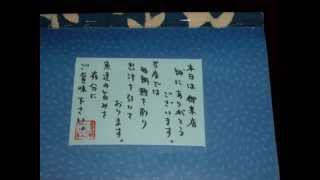 本日は御来店
誠にありがとう
ございます。
当店では
を削り
出汁を引いて
おります。
魚達の旨みを
存分に
ご賞味下さい